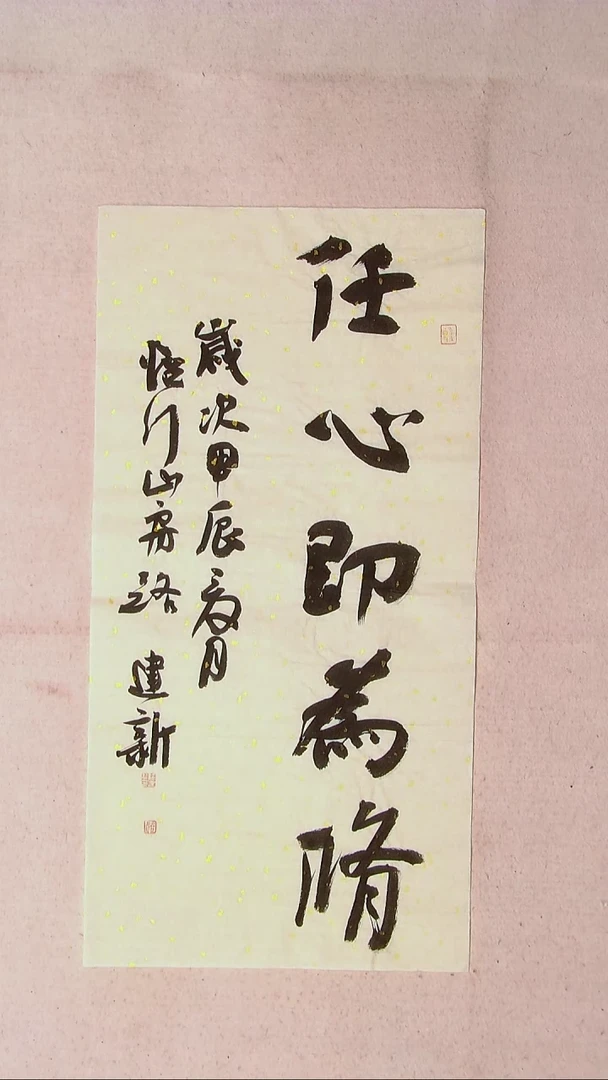 任心即為脩
歲次甲辰夏月
行山房路建新